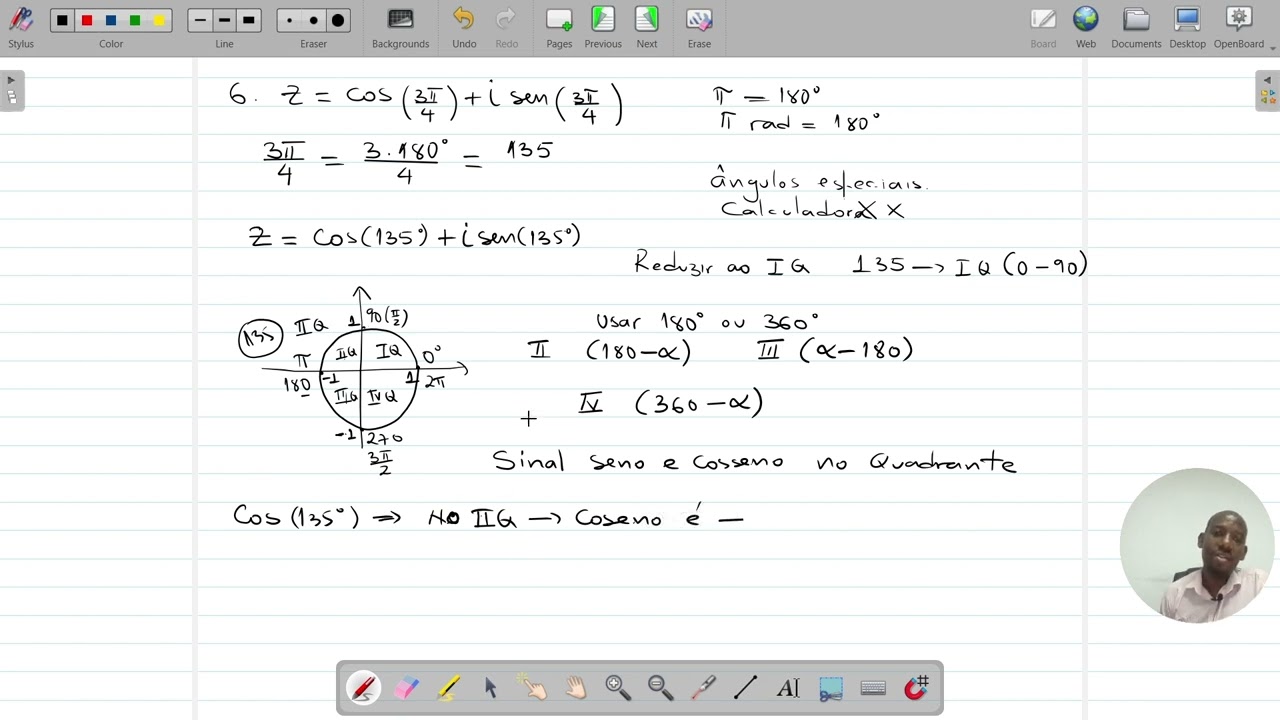 Stylus Color Line Eraser Backgrounds Undo Redo Pages Previous Next Erase Board Web Documents Desktop OpenBoard
6. Z = cos(3π/4) + i sen(3π/4)
π = 180°
π rad = 180°
3π/4 = 3.180°/4 = 135
ângulos especiais.
Calculadora X X
Z = Cos(135°) + i sen(135°)
Reduzir ao IQ 135 → IQ (0-90)
135 IIQ 1 90(π/2)
IIQ IQ
π 0°
180 -1 1 2π
IIIQ IVQ
-1 270
3π/2
Usar 180° ou 360°
II (180-α) III (α-180)
IV (360-α)
+
Sinal seno e cosseno no Quadrante
Cos(135°) ⇒ No IIQ → Coseno é -
AI